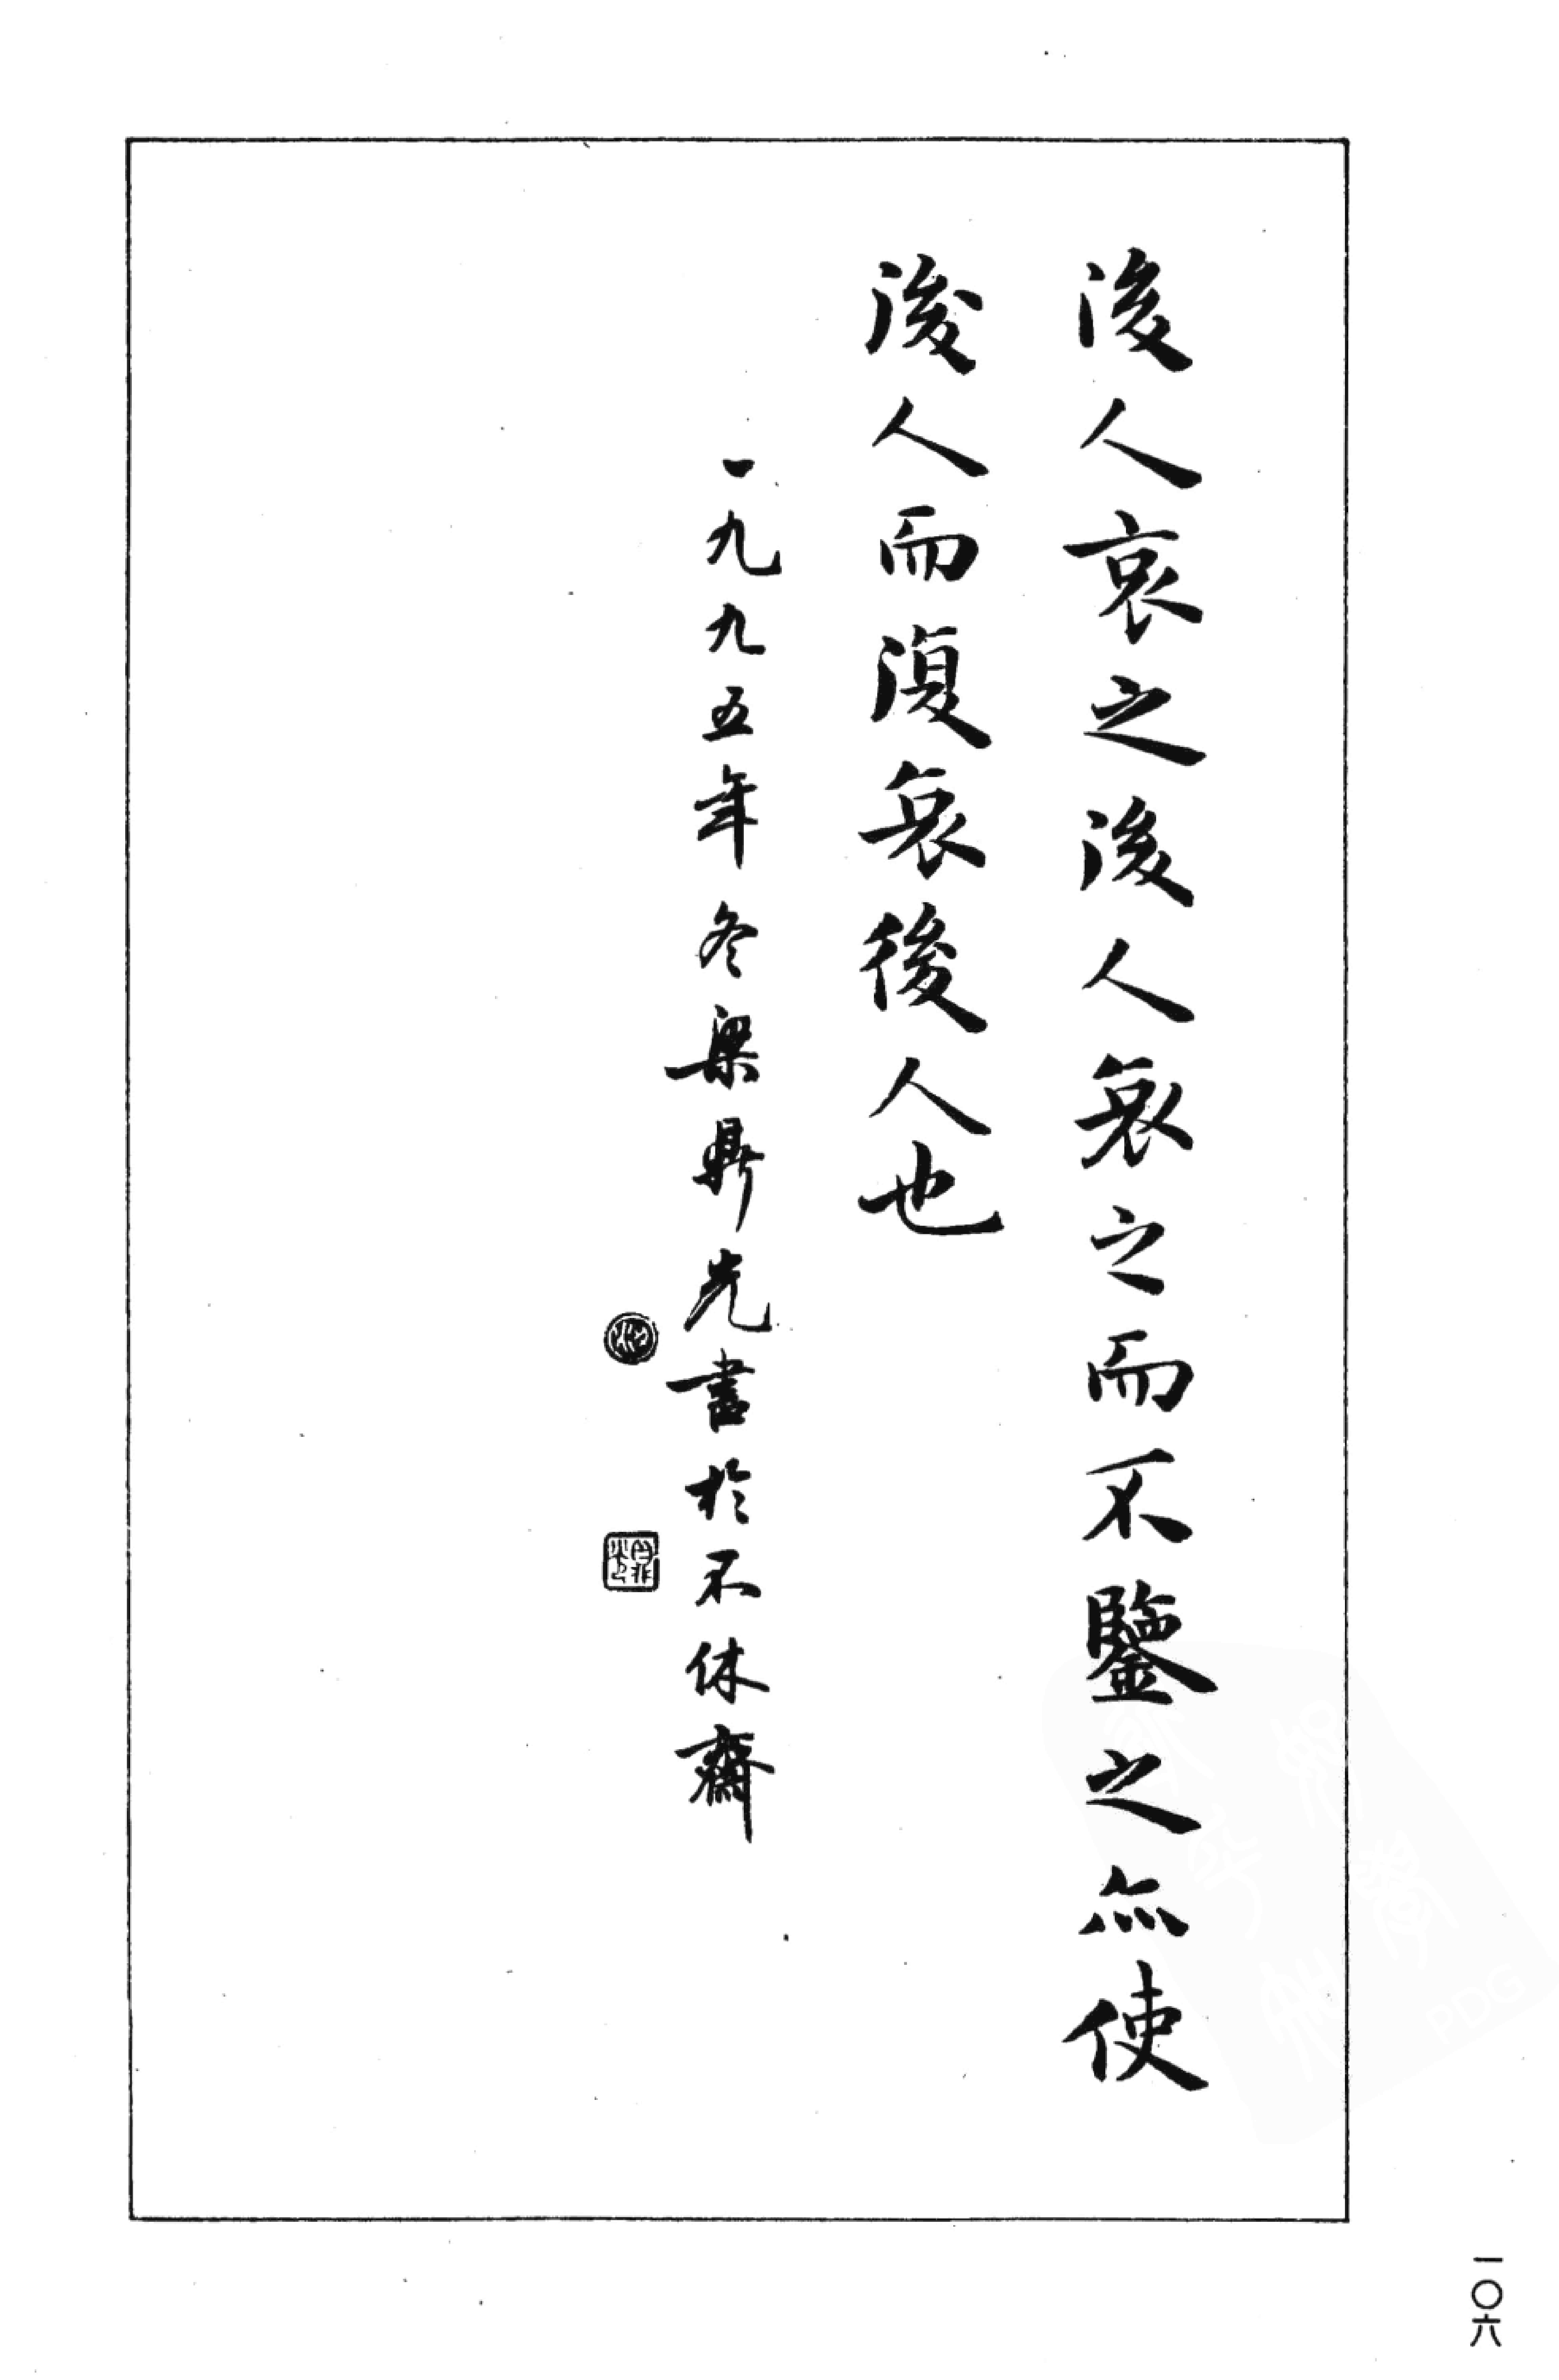 後人哀之後人哀之而不鑒之無使
後人而復哀後人也
一九九五年冬梁鼎光書於不休齋
一〇六
PDG